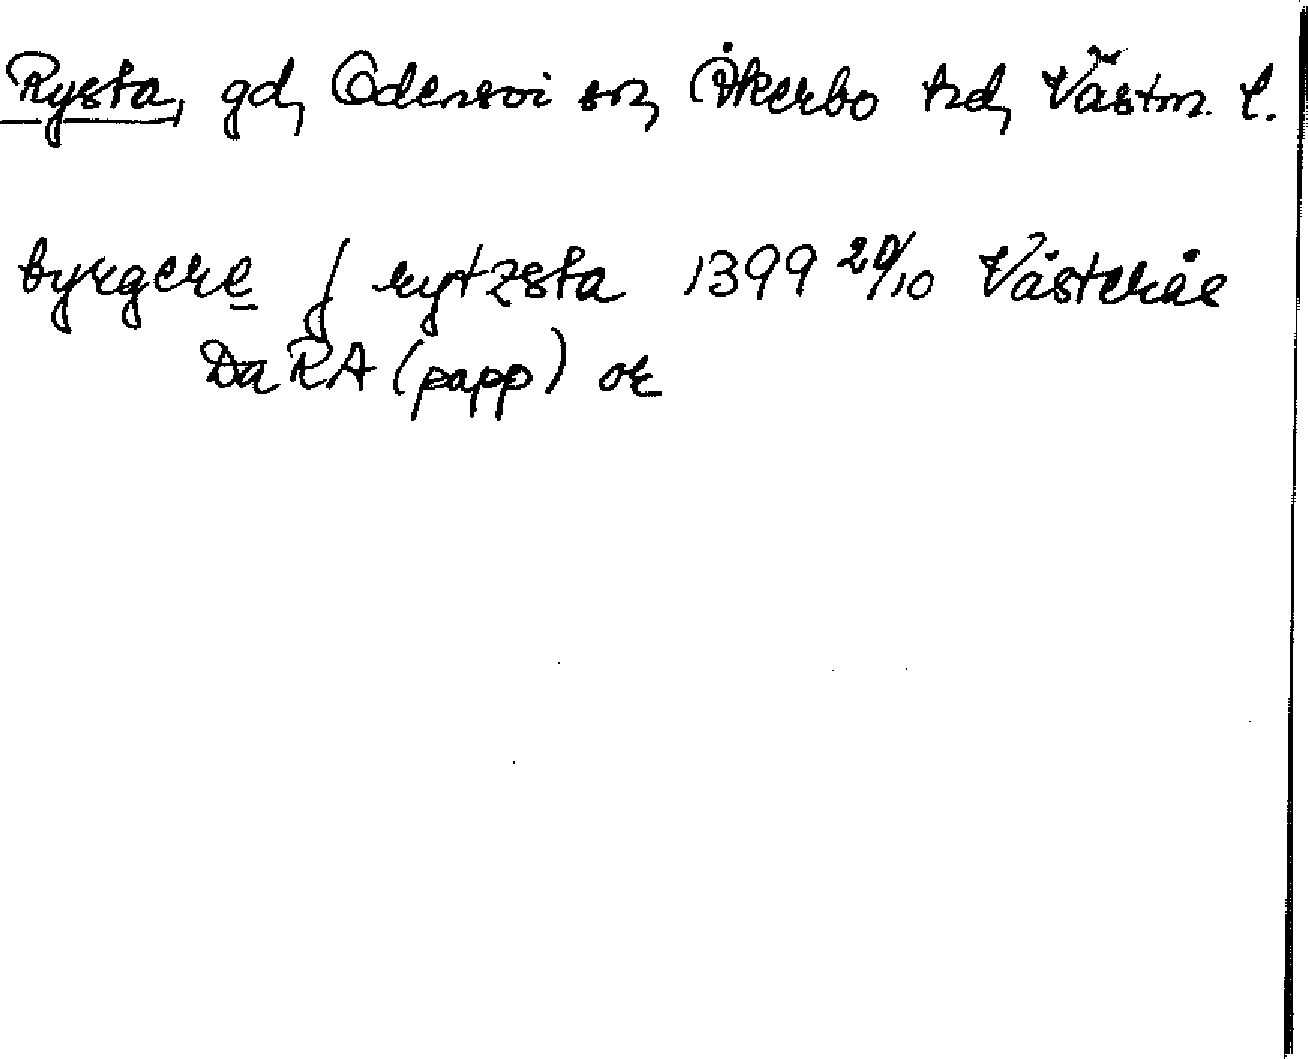 Rysta, gd, Odensvi sn, Åkerbo hd, Västm. l.
byrgere j rytzsta 1399 20/10 Västerås
Da RA (papp) or